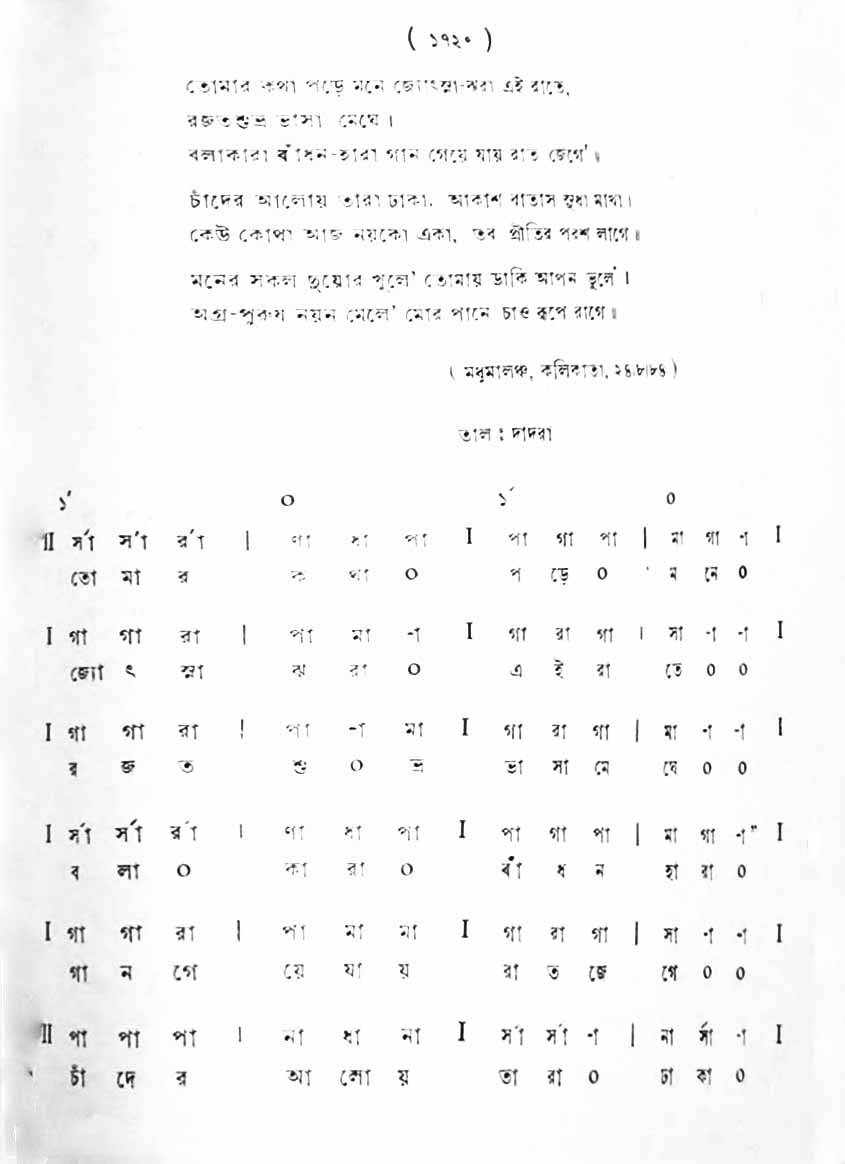 ( ১৭২০ )
তোমার কথা পড়ে মনে জ্যোৎস্না-ঝরা এই রাতে,
রজতশুভ্র ভাসা মেঘে ।
বলাকারা বাঁধন-হারা গান গেয়ে যায় রাত জেগে' ॥
চাঁদের আলোয় তারা ঢাকা. আকাশ বাতাস সুধা মাখা ।
কেউ কোথা আজ নয়কো একা, তব প্রীতির পরশ লাগে ॥
মনের সকল দুয়োর খুলে' তোমায় ডাকি আপন ভুলে' ।
অগ্র-পুরুষ নয়ন মেলে' মোর পানে চাও রূপে রাগে ॥
( মধুমালঞ্চ, কলিকাতা, ২৪।৮।৮৪ )
তাল : দাদরা
১´ ০ ১´ ০
II র্সা র্সা র্রা | ণা ধা পা I পা গা পা | মা গা -া I
তো মা র ক থা ০ প ড়ে ০ ম নে ০
I গা গা রা | পা মা -া I গা রা গা | সা -া -া I
জ্যো ৎ স্না ঝ রা ০ এ ই রা তে ০ ০
I গা গা রা | পা -া মা I গা রা গা | মা -া -া I
র জ ত শু ০ ভ্র ভা সা মে ঘে ০ ০
I র্সা র্সা র্রা | ণা ধা পা I পা গা পা | মা গা -া" I
ব লা ০ কা রা ০ বাঁ ধ ন হা রা ০
I গা গা রা | পা মা মা I গা রা গা | সা -া -া I
গা ন গে য়ে যা য় রা ত জে গে ০ ০
II পা পা পা | না ধা না I র্সা র্সা -া | না র্সা -া I
চাঁ দে র আ লো য় তা রা ০ ঢা কা ০